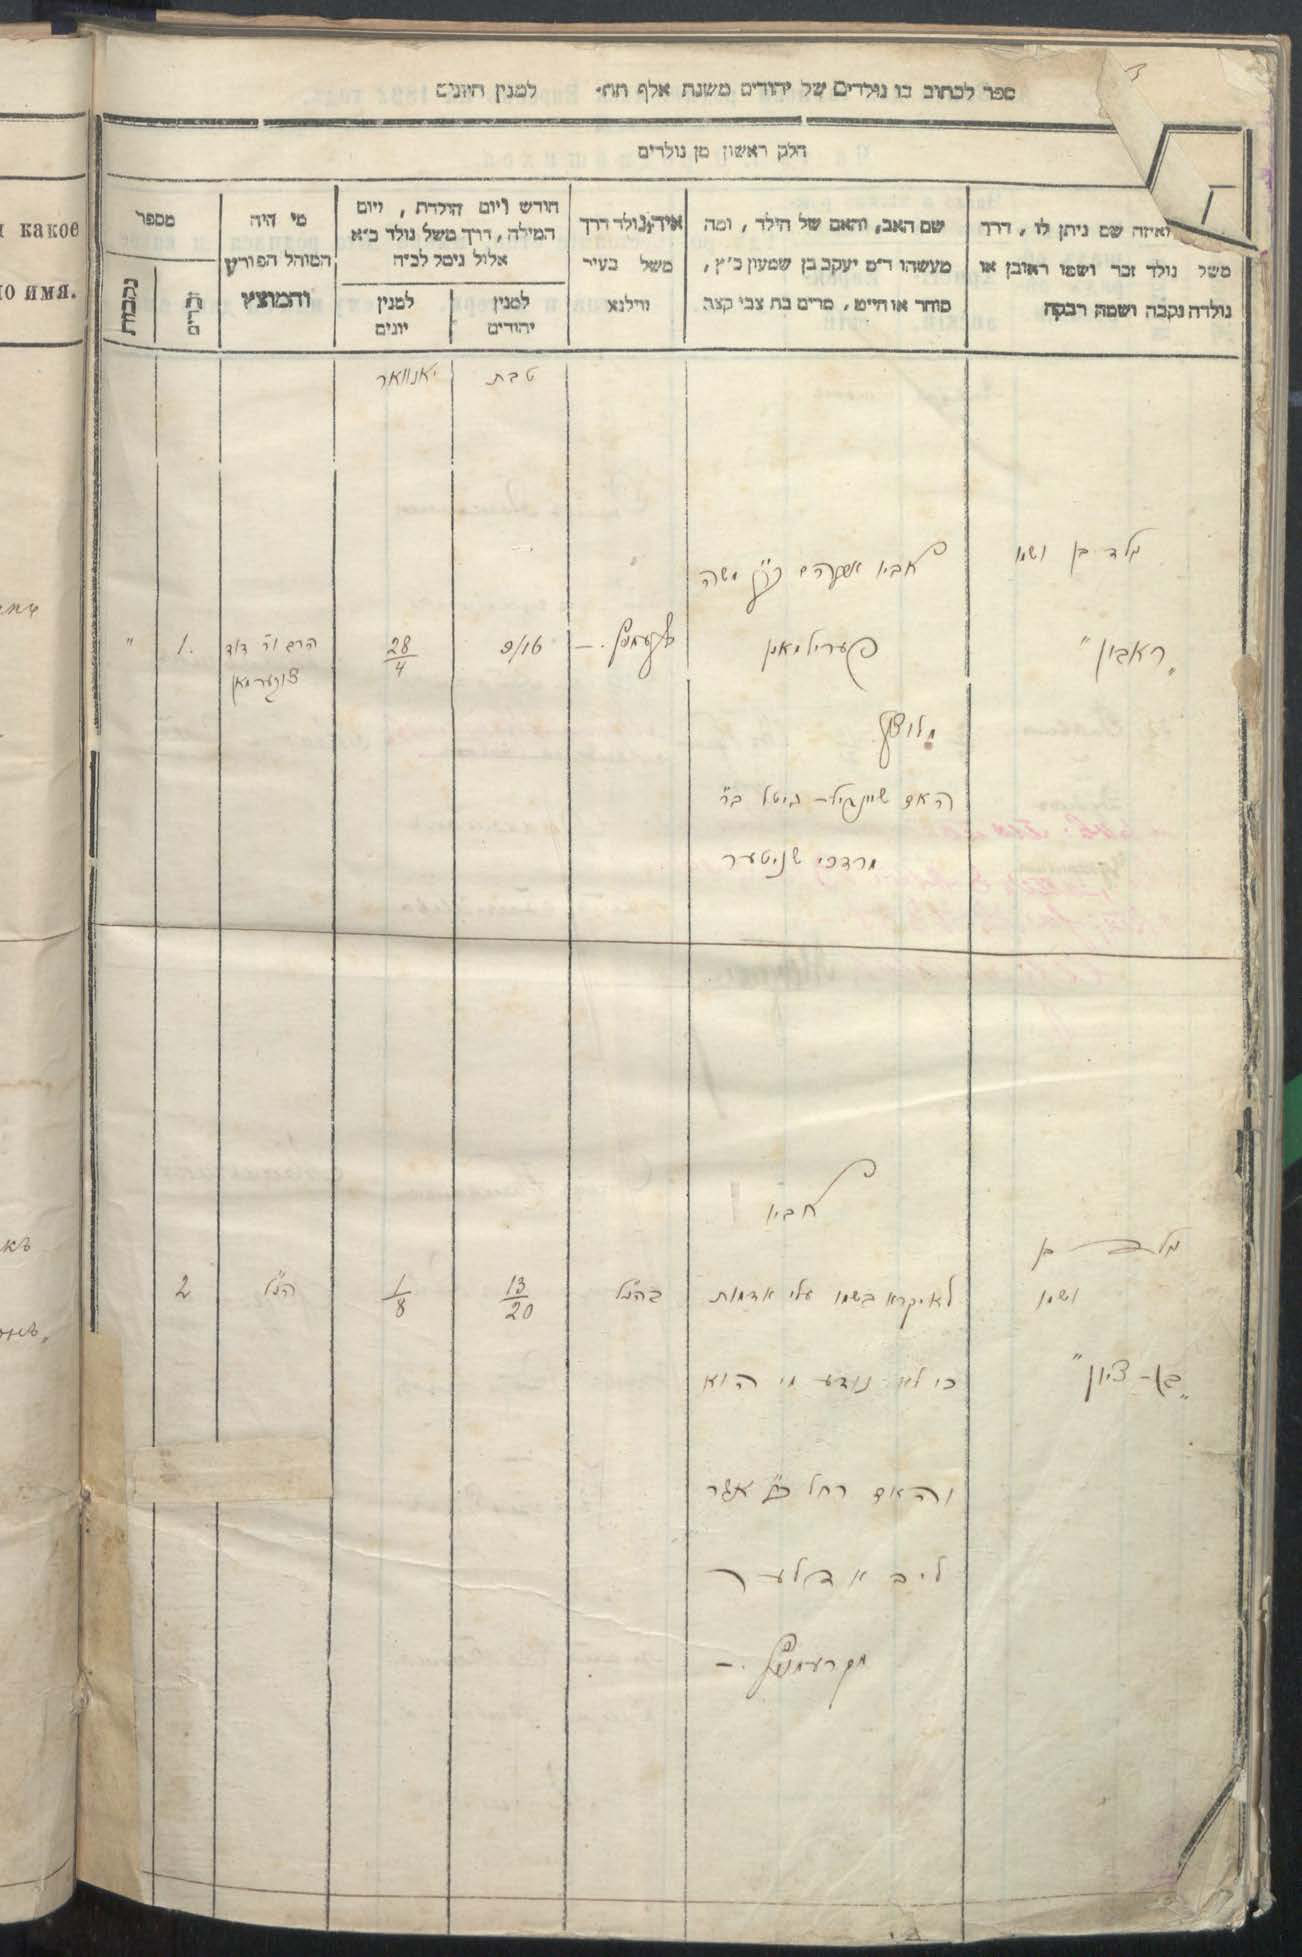 ספר לכתוב בו נולדים של יהודים משנת אלף תתי למנין היונים
חלק ראשון מן נולדים
ואיזה שם ניתן לו, דרך
משל נולד זכר ושמו ראובן או
נולדה נקבה ושמה רבקה
שם האב, והאם של הילד, ומה
מעשהו ד״מ יעקב בן שמעון כ״ץ,
סוחר או חייט, מרים בת צבי קצב
איה נולד דרך
משל בעיר
ווילנא
חודש ויום הולדת, ויום
המילה, דרך משל נולד כ״א
אלול נימל לכ״ח
למנין
יהודים
למנין
יונים
מי היה
המוהל הפורע
והמוצץ
מספר
זכרים
נקבות
טבת
יאנוואר
נולד בן ושמו
„ראובן״
האביו אפרים משה
פערילמאן
האם שיינדיל- גיטל ב״ר
מרדכי שניטער
9/16
28/4
הרב ור׳ דוד
צוקערמאן
1.
״
נולד בן
ושמו
„בן- ציון״
האביו
לא יקרא בשמו עלי אדמות
כי לא נודע מי הוא
והאם רחל
ליב אדלער
בהנ״ל
13/20
1/8
הנ״ל
2
и какое
но имя.